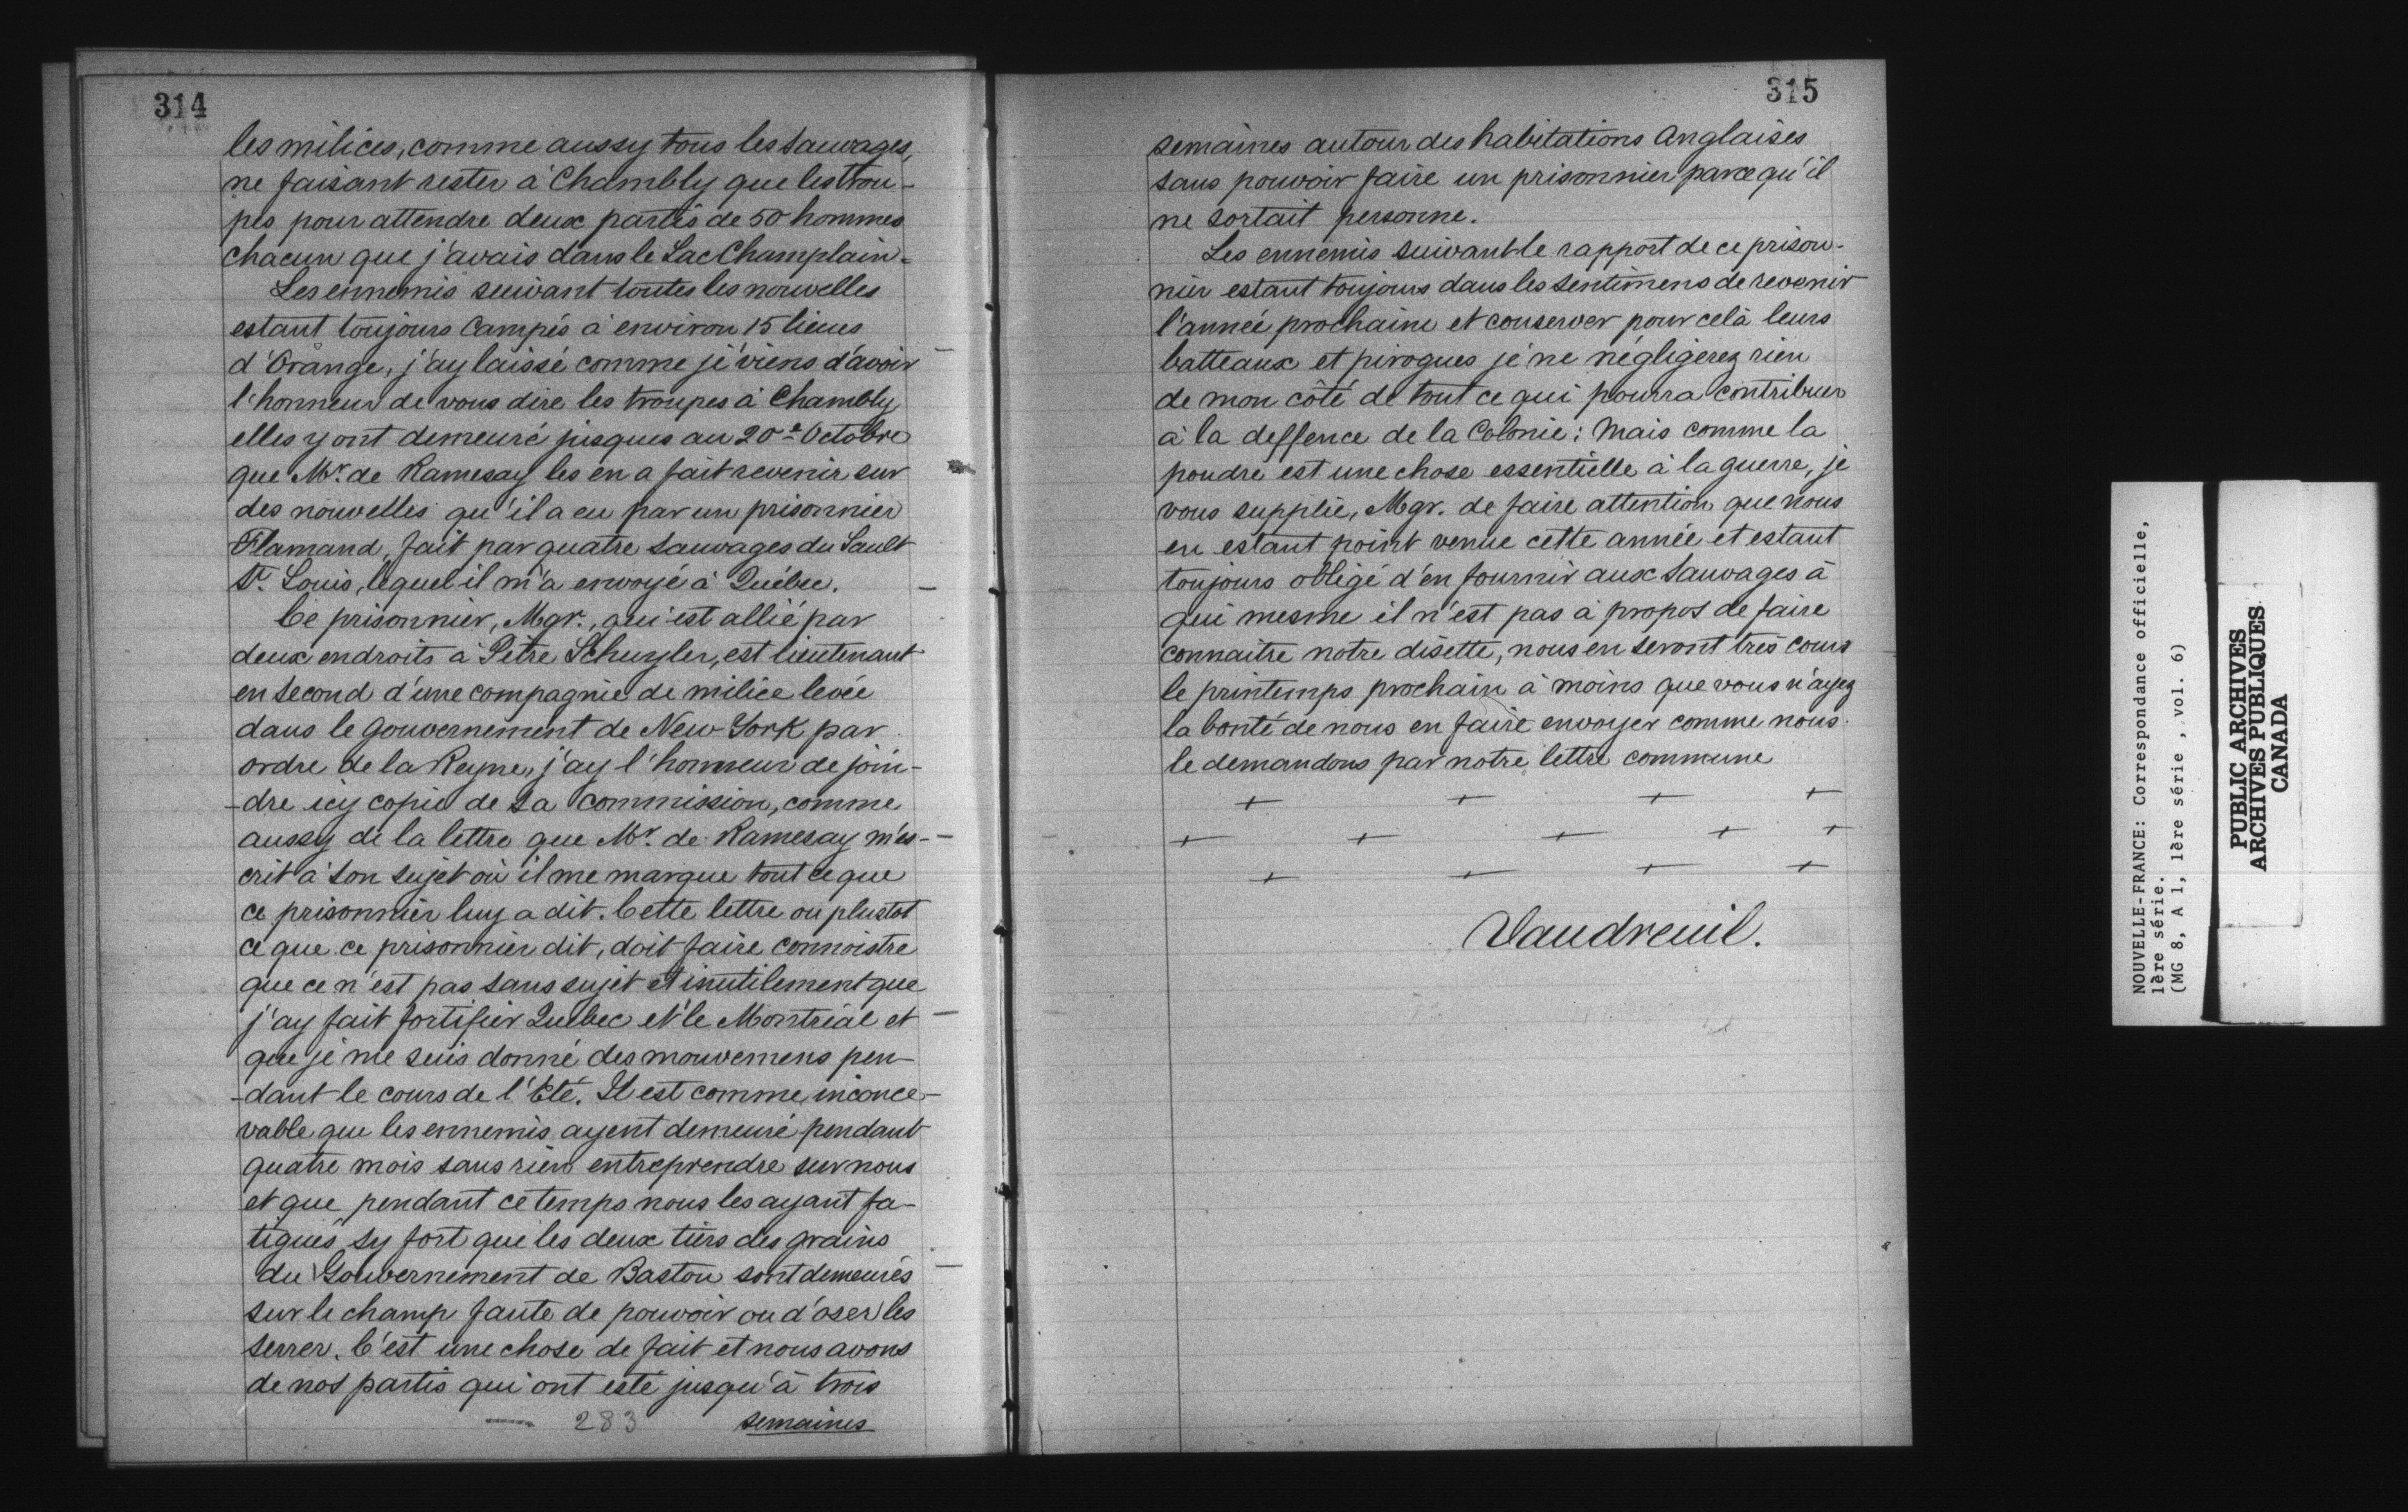 314
les milices, comme aussy tous les Sauvages,
ne faisant rester à Chambly que les trou-
pes pour attendre deux partis de 50 hommes
chacun que j'avais dans le Lac Champlain-
Les ennemis suivant toutes les nouvelles
estant toujours Campés à environ 15 lieues
d'Orange, j'ay laissé comme je viens d'avoir
l'honneur de vous dire les troupes à Chambly
elles y ont demeuré jusques au 20e Octobre
que Mr. de Ramesay les en a fait revenir sur
des nouvelles qu'il a eu par un prisonnier
Flamand, fait par quatre Sauvages du Sault
St. Louis, lequel il m'a envoyé à Québec.
Ce prisonnier, Mgr., qui est allié par
deux endroits à Pitre Schuyler, est lieutenant
en second d'une compagnie de milice levée
dans le gouvernement de New York par
ordre de la Reyne, j'ay l'honneur de join-
-dre icy copie de sa Commission, comme
aussy de la lettre que Mr. de Ramesay m'es-
crit à son sujet où il me marque tout ce que
ce prisonnier luy a dit. Cette lettre ou plustot
ce que ce prisonnier dit, doit faire connoistre
que ce n'est pas sans sujet et inutilement que
j'ay fait fortifier Québec et le Montréal et
que je me suis donné des mouvemens pen-
-dant le cours de l'Eté. Il est comme inconce-
vable que les ennemis ayent demeuré pendant
quatre mois sans rien entreprendre sur nous
et que pendant ce temps nous les ayant fa-
tigués sy fort que les deux tiers des grains
du Gouvernement de Baston sont demeurés
sur le champ faute de pouvoir ou d'oser les
serrer. C'est une chose de fait et nous avons
de nos partis qui ont esté jusqu'à trois
283 semaines
315
semaines autour des habitations Anglaises
sans pouvoir faire un prisonnier parce qu'il
ne sortait personne.
Les ennemis suivant le rapport de ce prison-
nier estant toujours dans les sentimens de revenir
l'année prochaine et conserver pour celà leurs
batteaux et pirogues je ne négligerez rien
de mon côté de tout ce qui pourra contribuer
à la deffence de la Colonie; Mais comme la
poudre est une chose essentielle à la guerre, je
vous supplie, Mgr. de faire attention que nous
en estant point venue cette année et estant
toujours obligé d'en fournir aux Sauvages à
qui mesme il n'est pas à propos de faire
connaitre notre disette, nous en seront très cours
le printemps prochain à moins que vous n'ayez
la bonté de nous en faire envoyer comme nous
le demandons par notre lettre commune
+ + + +
+ + + + +
+ + + +
Vaudreuil.
NOUVELLE-FRANCE: Correspondance officielle,
1ère série.
(MG 8, A 1, 1ère série , vol. 6)
PUBLIC ARCHIVES
ARCHIVES PUBLIQUES
CANADA